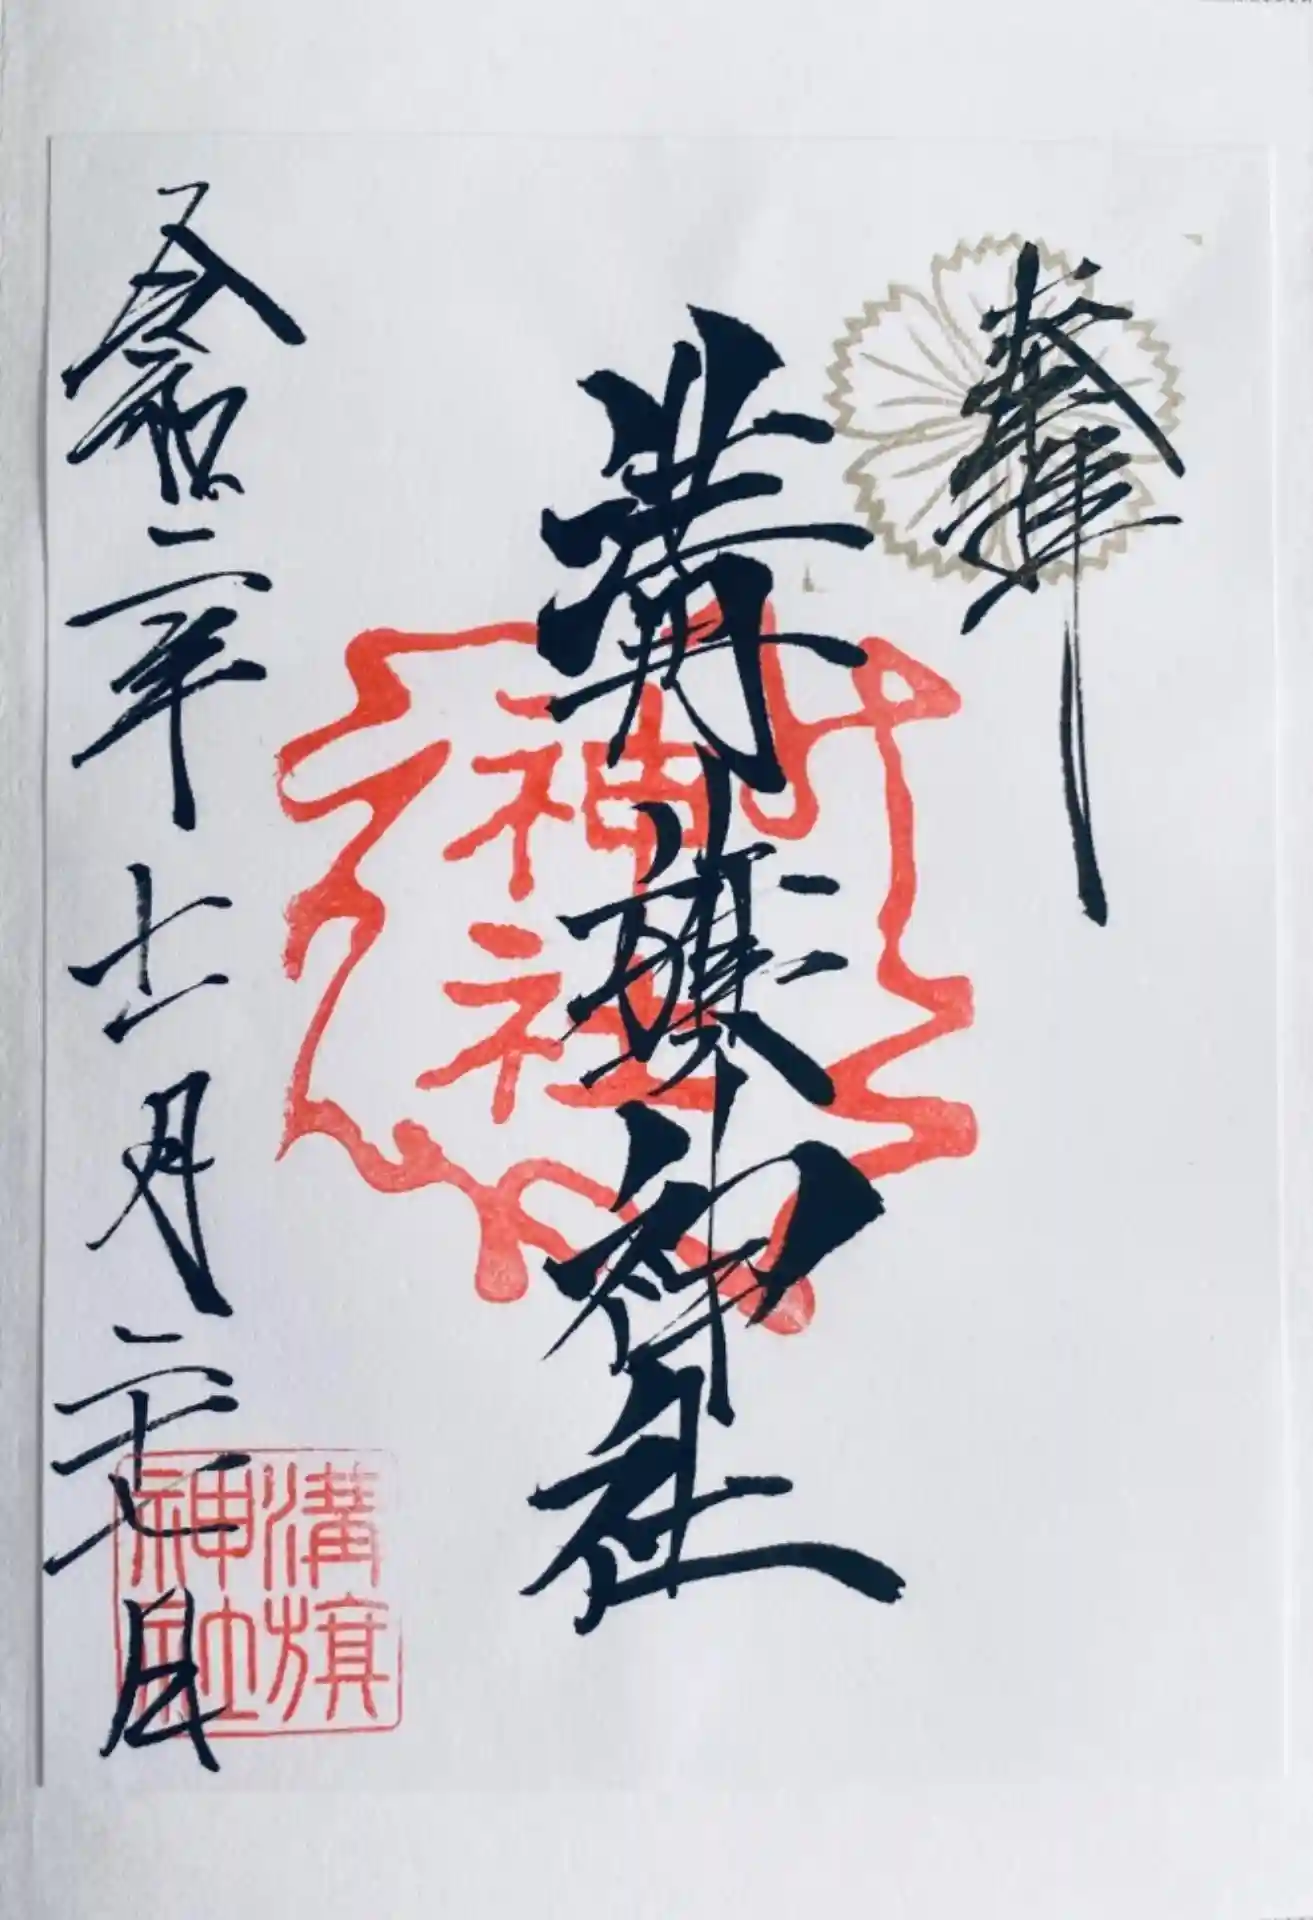 奉拝
溝旗神社
神社
令和二年十一月二十七日
溝旗
神社